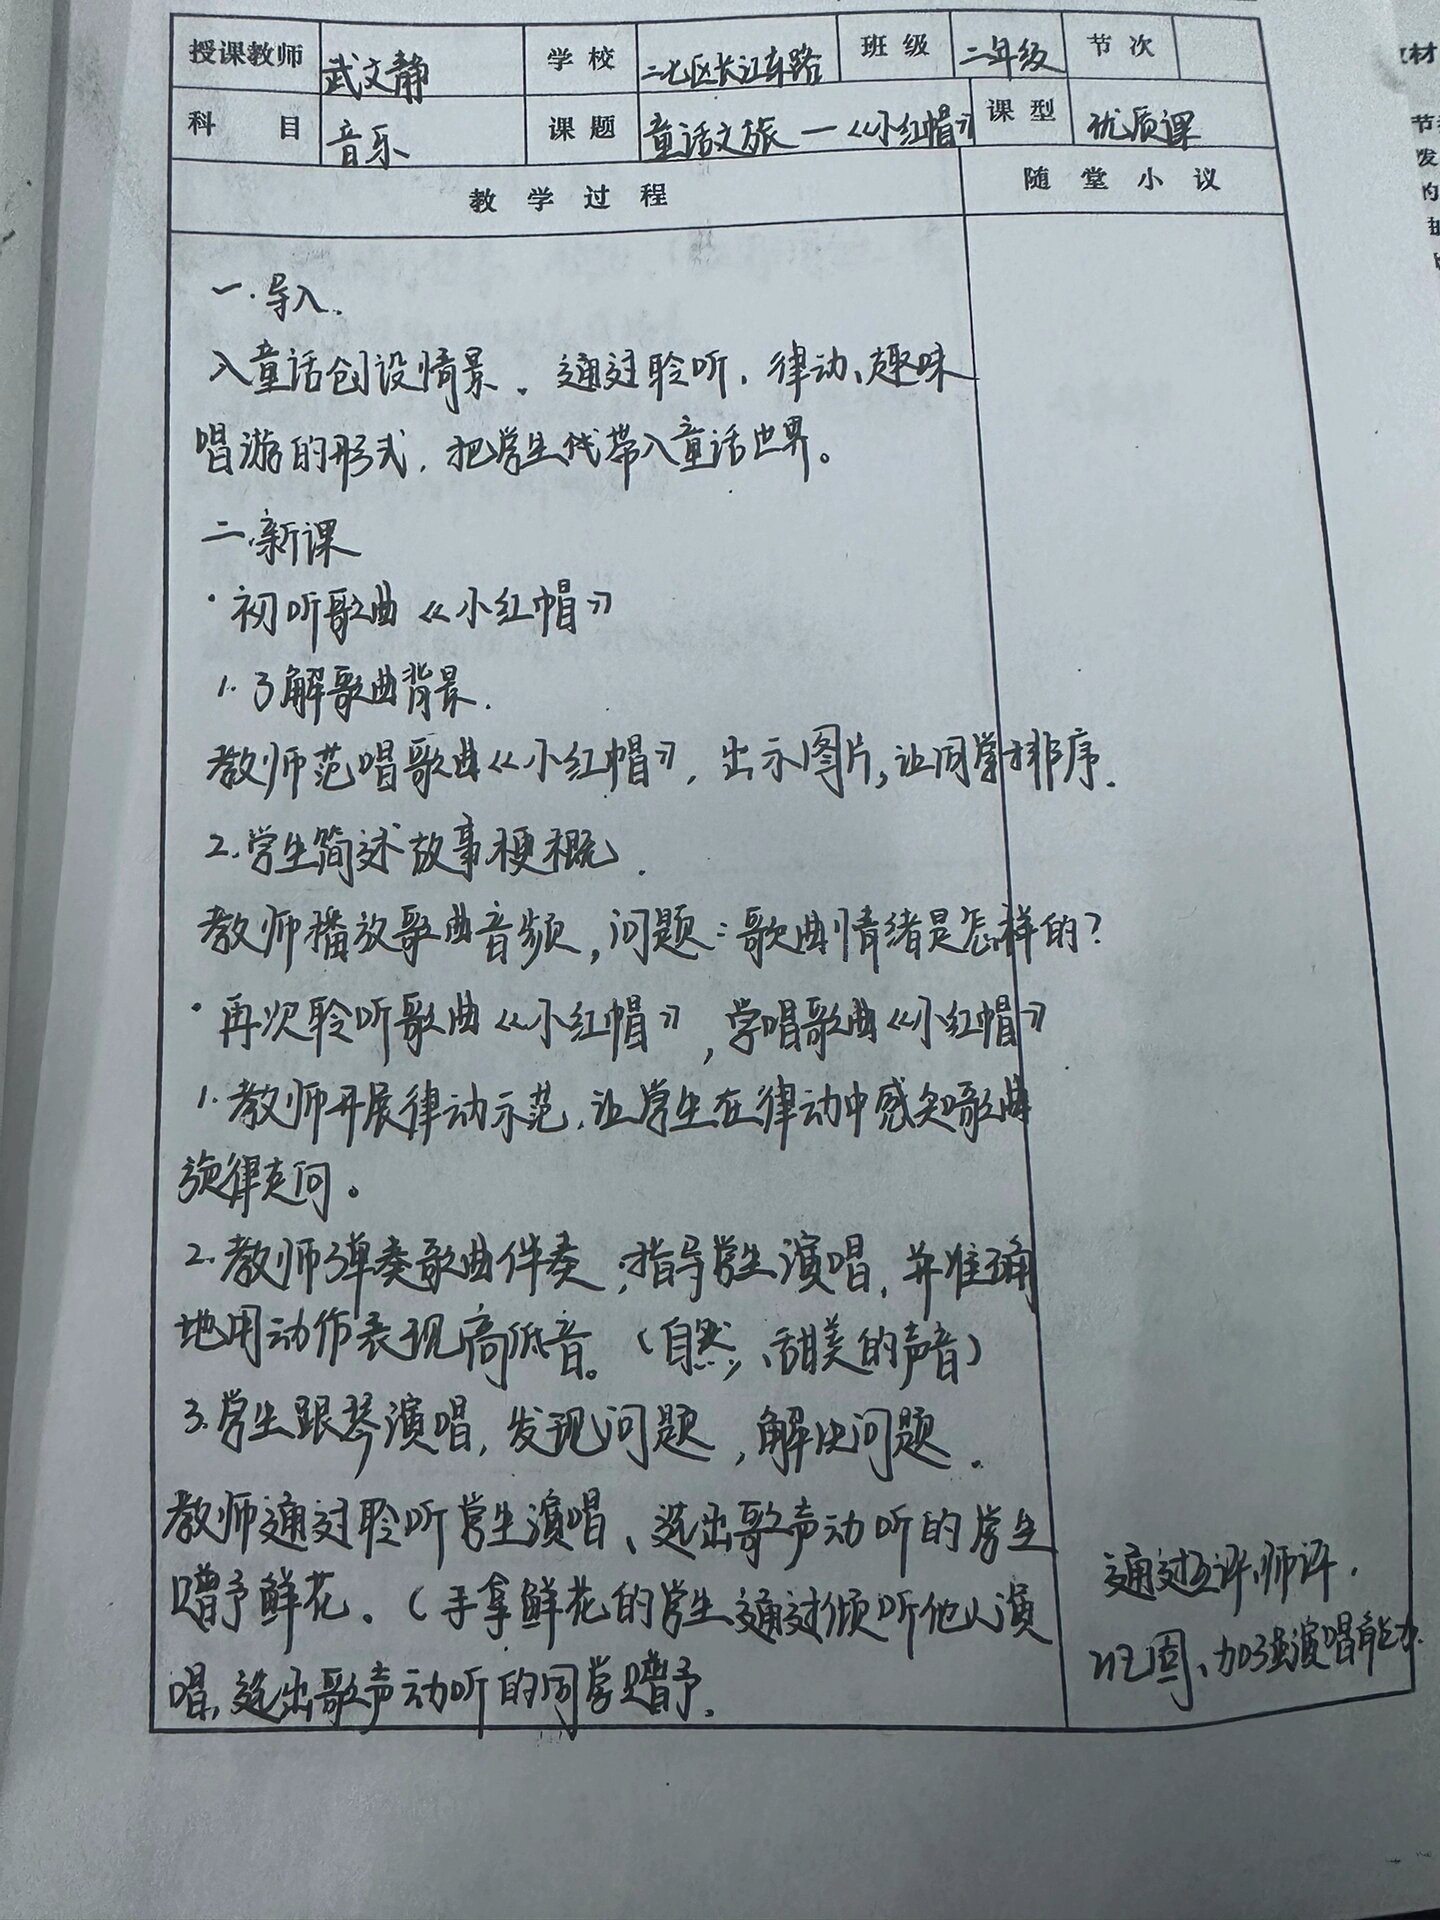 授课教师 武文静 学校 二七区长江东路 班级 二年级 节次
科目 音乐 课题 童话文旅—《小红帽》 课型 优质课
教学过程 随堂小议
一.导入.
入童话创设情景。通过聆听、律动、趣味
唱游的形式,把学生代带入童话世界。
二.新课
·初听歌曲《小红帽》
1.了解歌曲背景.
教师范唱歌曲《小红帽》,出示图片,让同学排序.
2.学生简述故事梗概.
教师播放歌曲音频,问题:歌曲情绪是怎样的?
·再次聆听歌曲《小红帽》,学唱歌曲《小红帽》
1.教师开展律动示范,让学生在律动中感知歌曲
旋律走向。
2.教师弹奏歌曲伴奏,指导学生演唱,并准确
地用动作表现高低音。(自然、甜美的声音)
3.学生跟琴演唱,发现问题,解决问题.
教师通过聆听学生演唱、选出歌声动听的学生
赠予鲜花。(手拿鲜花的学生通过倾听他人演
唱,选出歌声动听的同学赠予.
通过互评、师评,
巩固、加强演唱能力.
教材
节
发
的